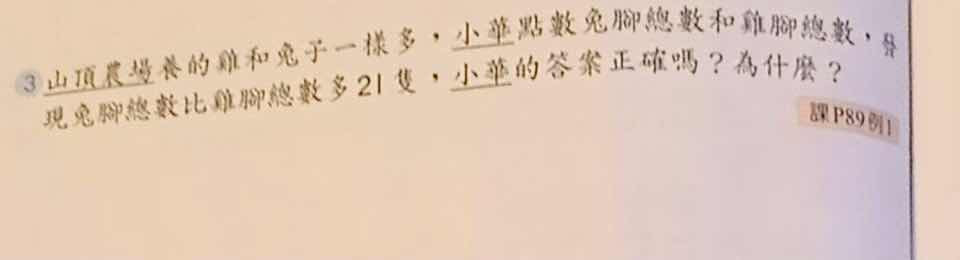 3 山頂農場養的雞和兔子一樣多，小華點數兔腳總數和雞腳總數，發
現兔腳總數比雞腳總數多21隻，小華的答案正確嗎？為什麼？
課P89例1